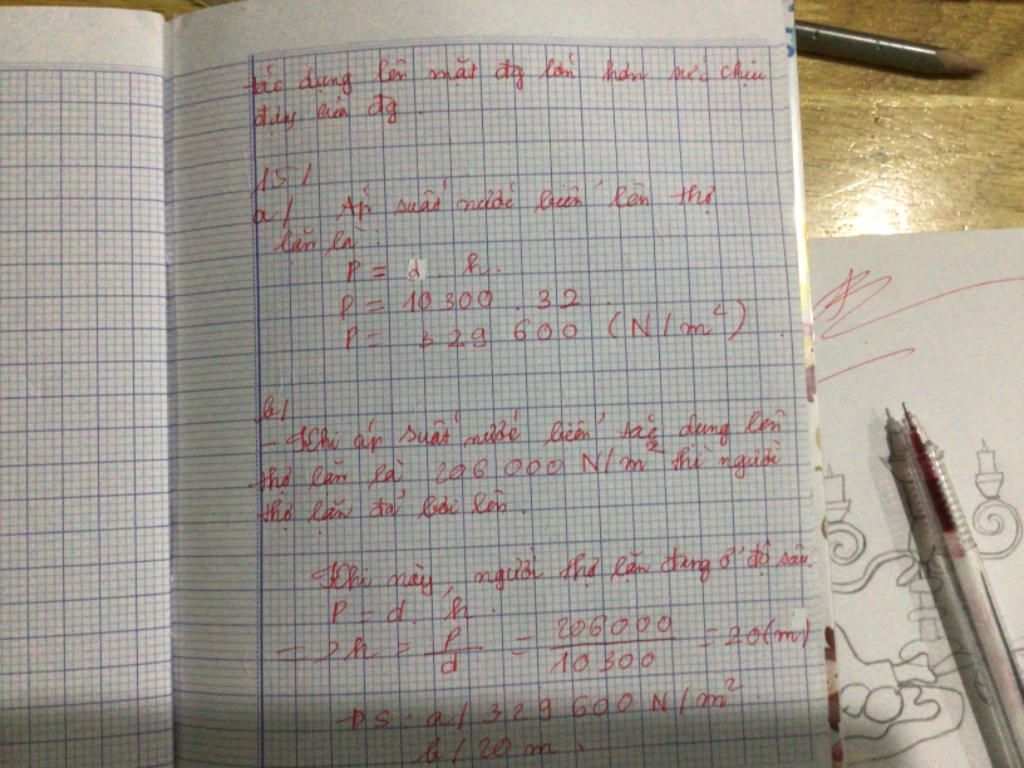 tác dụng lên mặt đg lớn hơn sức chịu
đựng của đg.
15/
a/ Áp suất nước biển lên thợ
lặn là:
P = d. h.
P = 10300 . 32.
P = 329 600 (N/m²).
b/
- Khi áp suất nước biển tác dụng lên
thợ lặn là 206 000 N/m² thì người
thợ lặn đã bơi lên.
Khi này, người thợ lặn đang ở độ sâu:
P = d. h.
=> h = P/d = 206000/10300 = 20(m)
ĐS: a/ 329 600 N/m².
b/ 20 m.